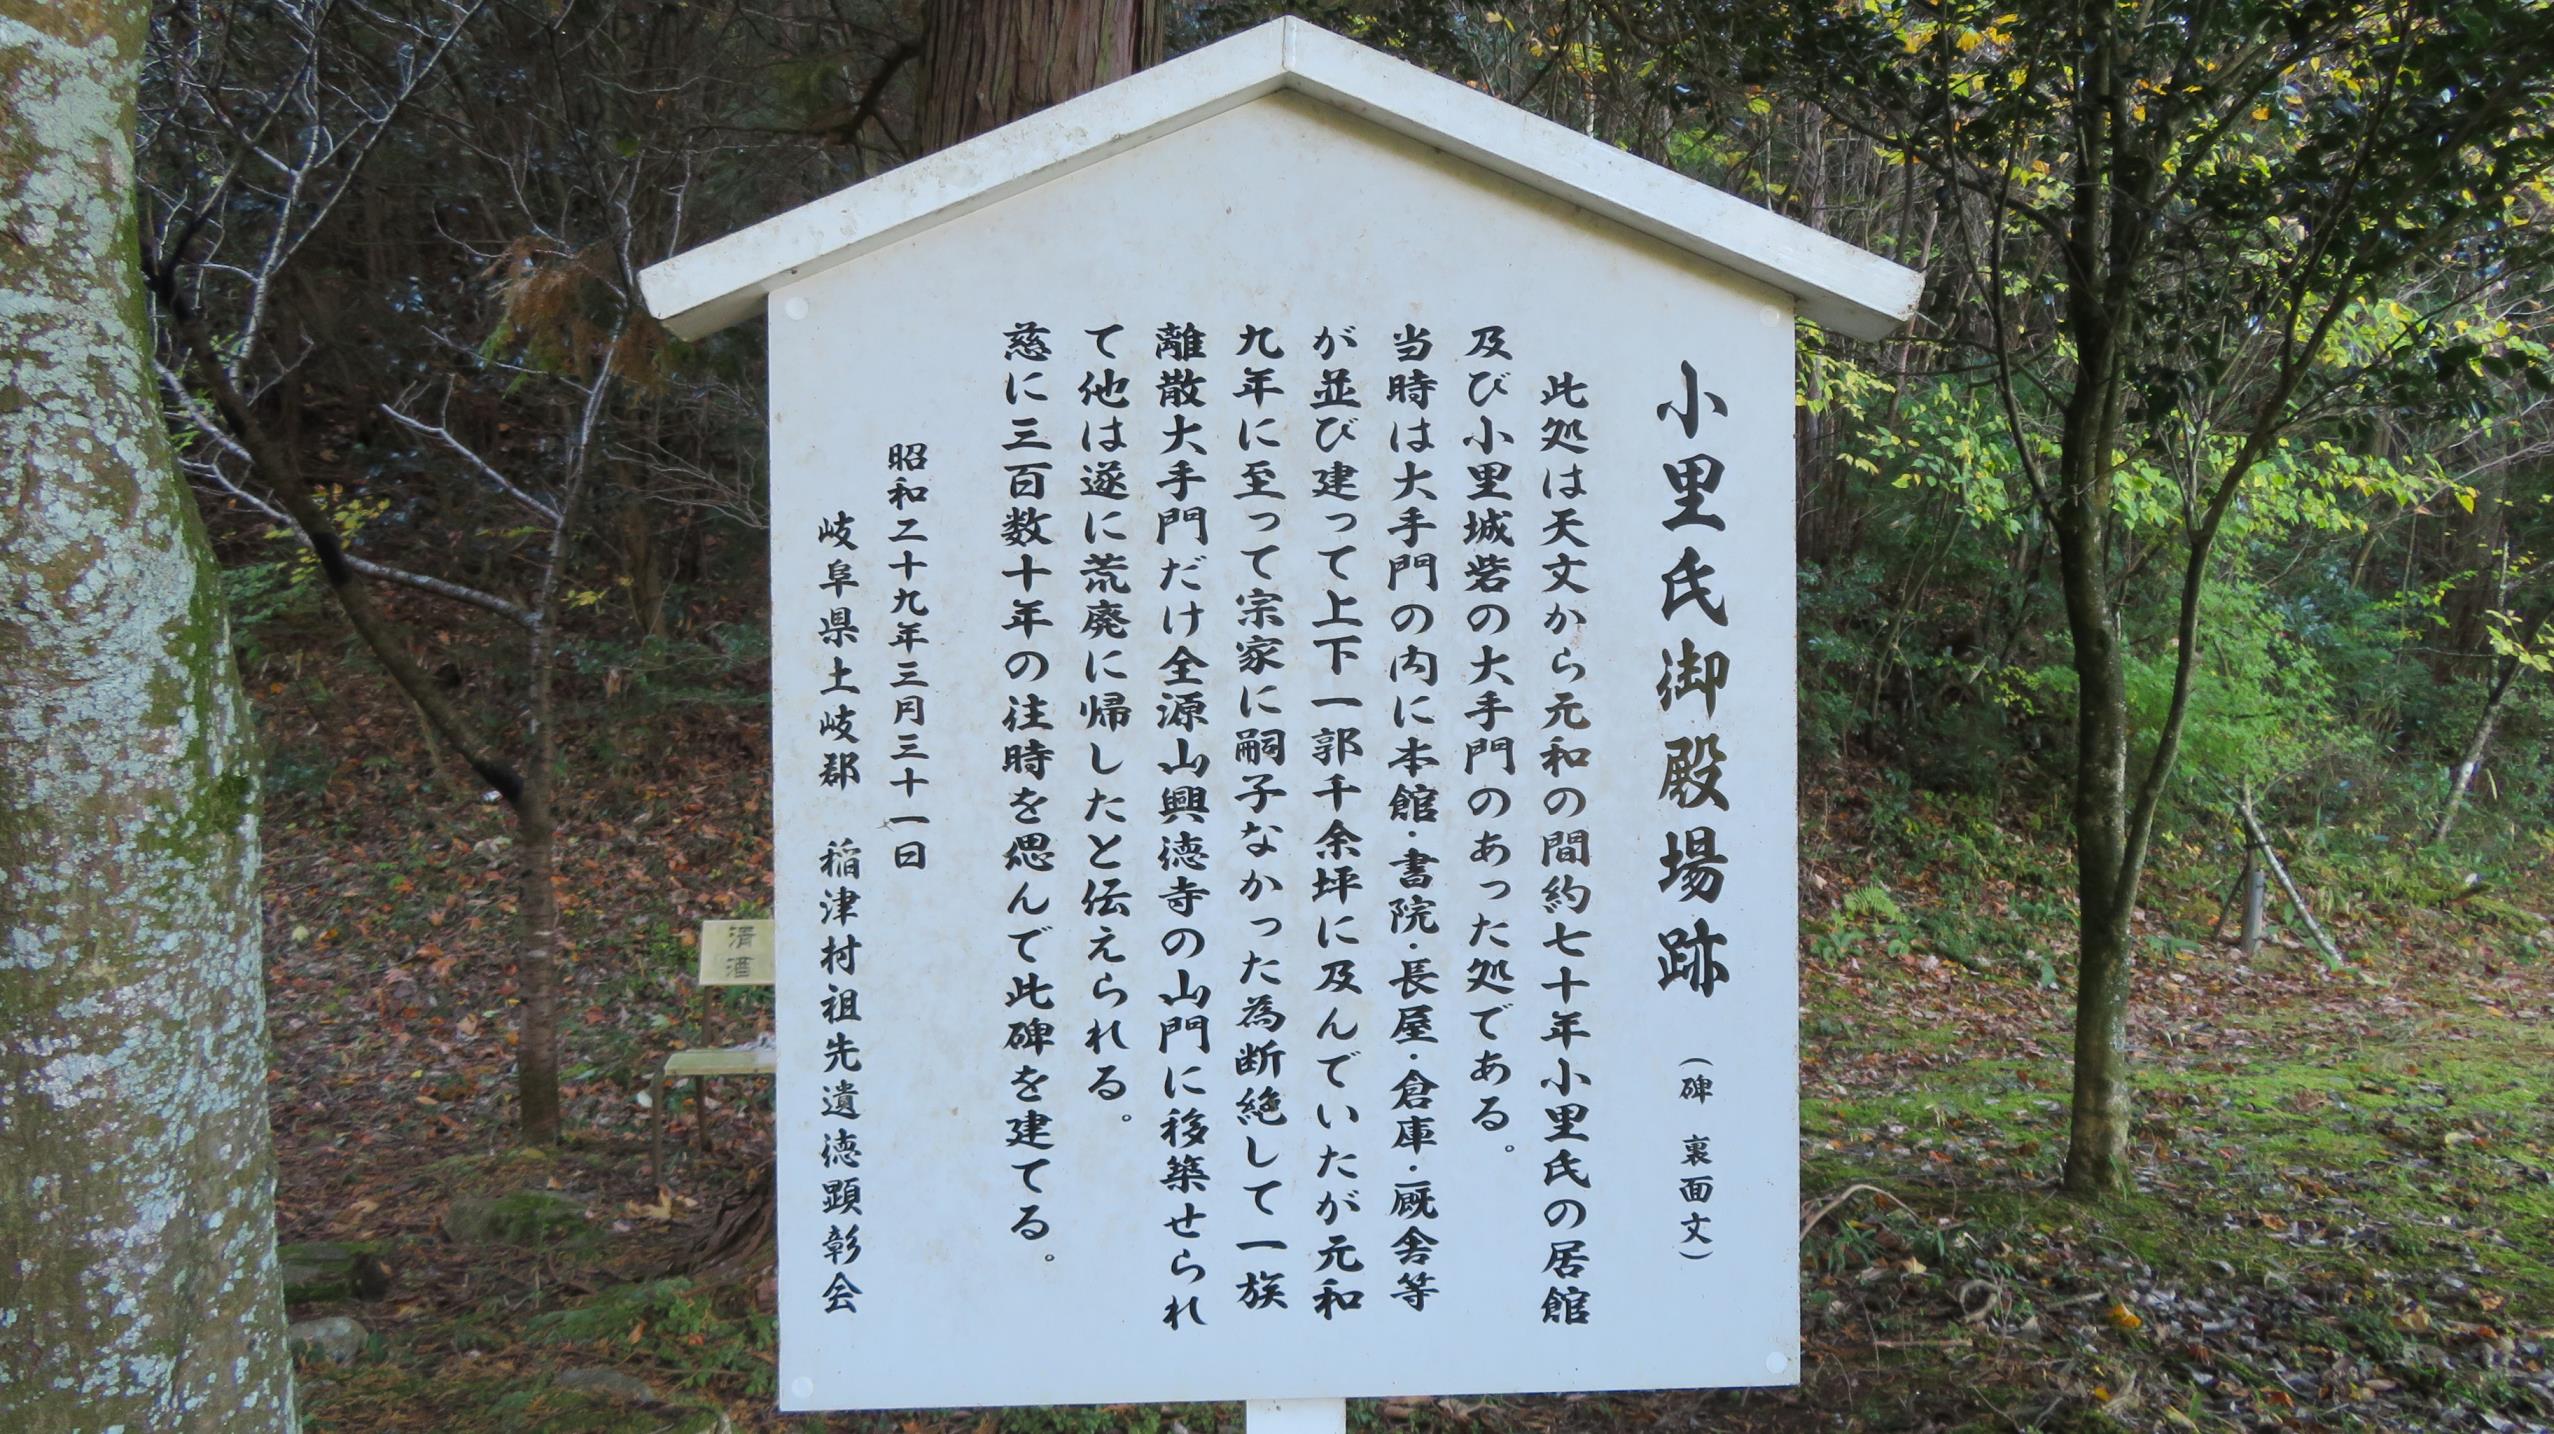 小里氏御殿場跡 (碑 裏面文)
此処は天文から元和の間約七十年小里氏の居館
及び小里城砦の大手門のあった処である。
当時は大手門の内に本館・書院・長屋・倉庫・厩舎等
が並び建って上下一郭千余坪に及んでいたが元和
九年に至って宗家に嗣子なかった為断絶して一族
離散大手門だけ全源山興徳寺の山門に移築せられ
て他は遂に荒廃に帰したと伝えられる。
慈に三百数十年の往時を偲んで此碑を建てる。
昭和二十九年三月三十一日
岐阜県土岐郡 稲津村祖先遺徳顕彰会
清酒